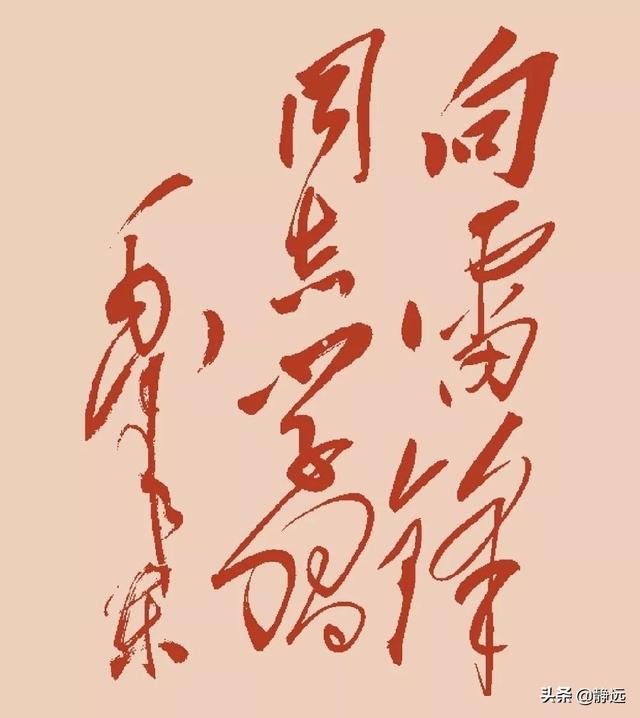 向雷锋
同志学习
毛泽东
头条 @静远